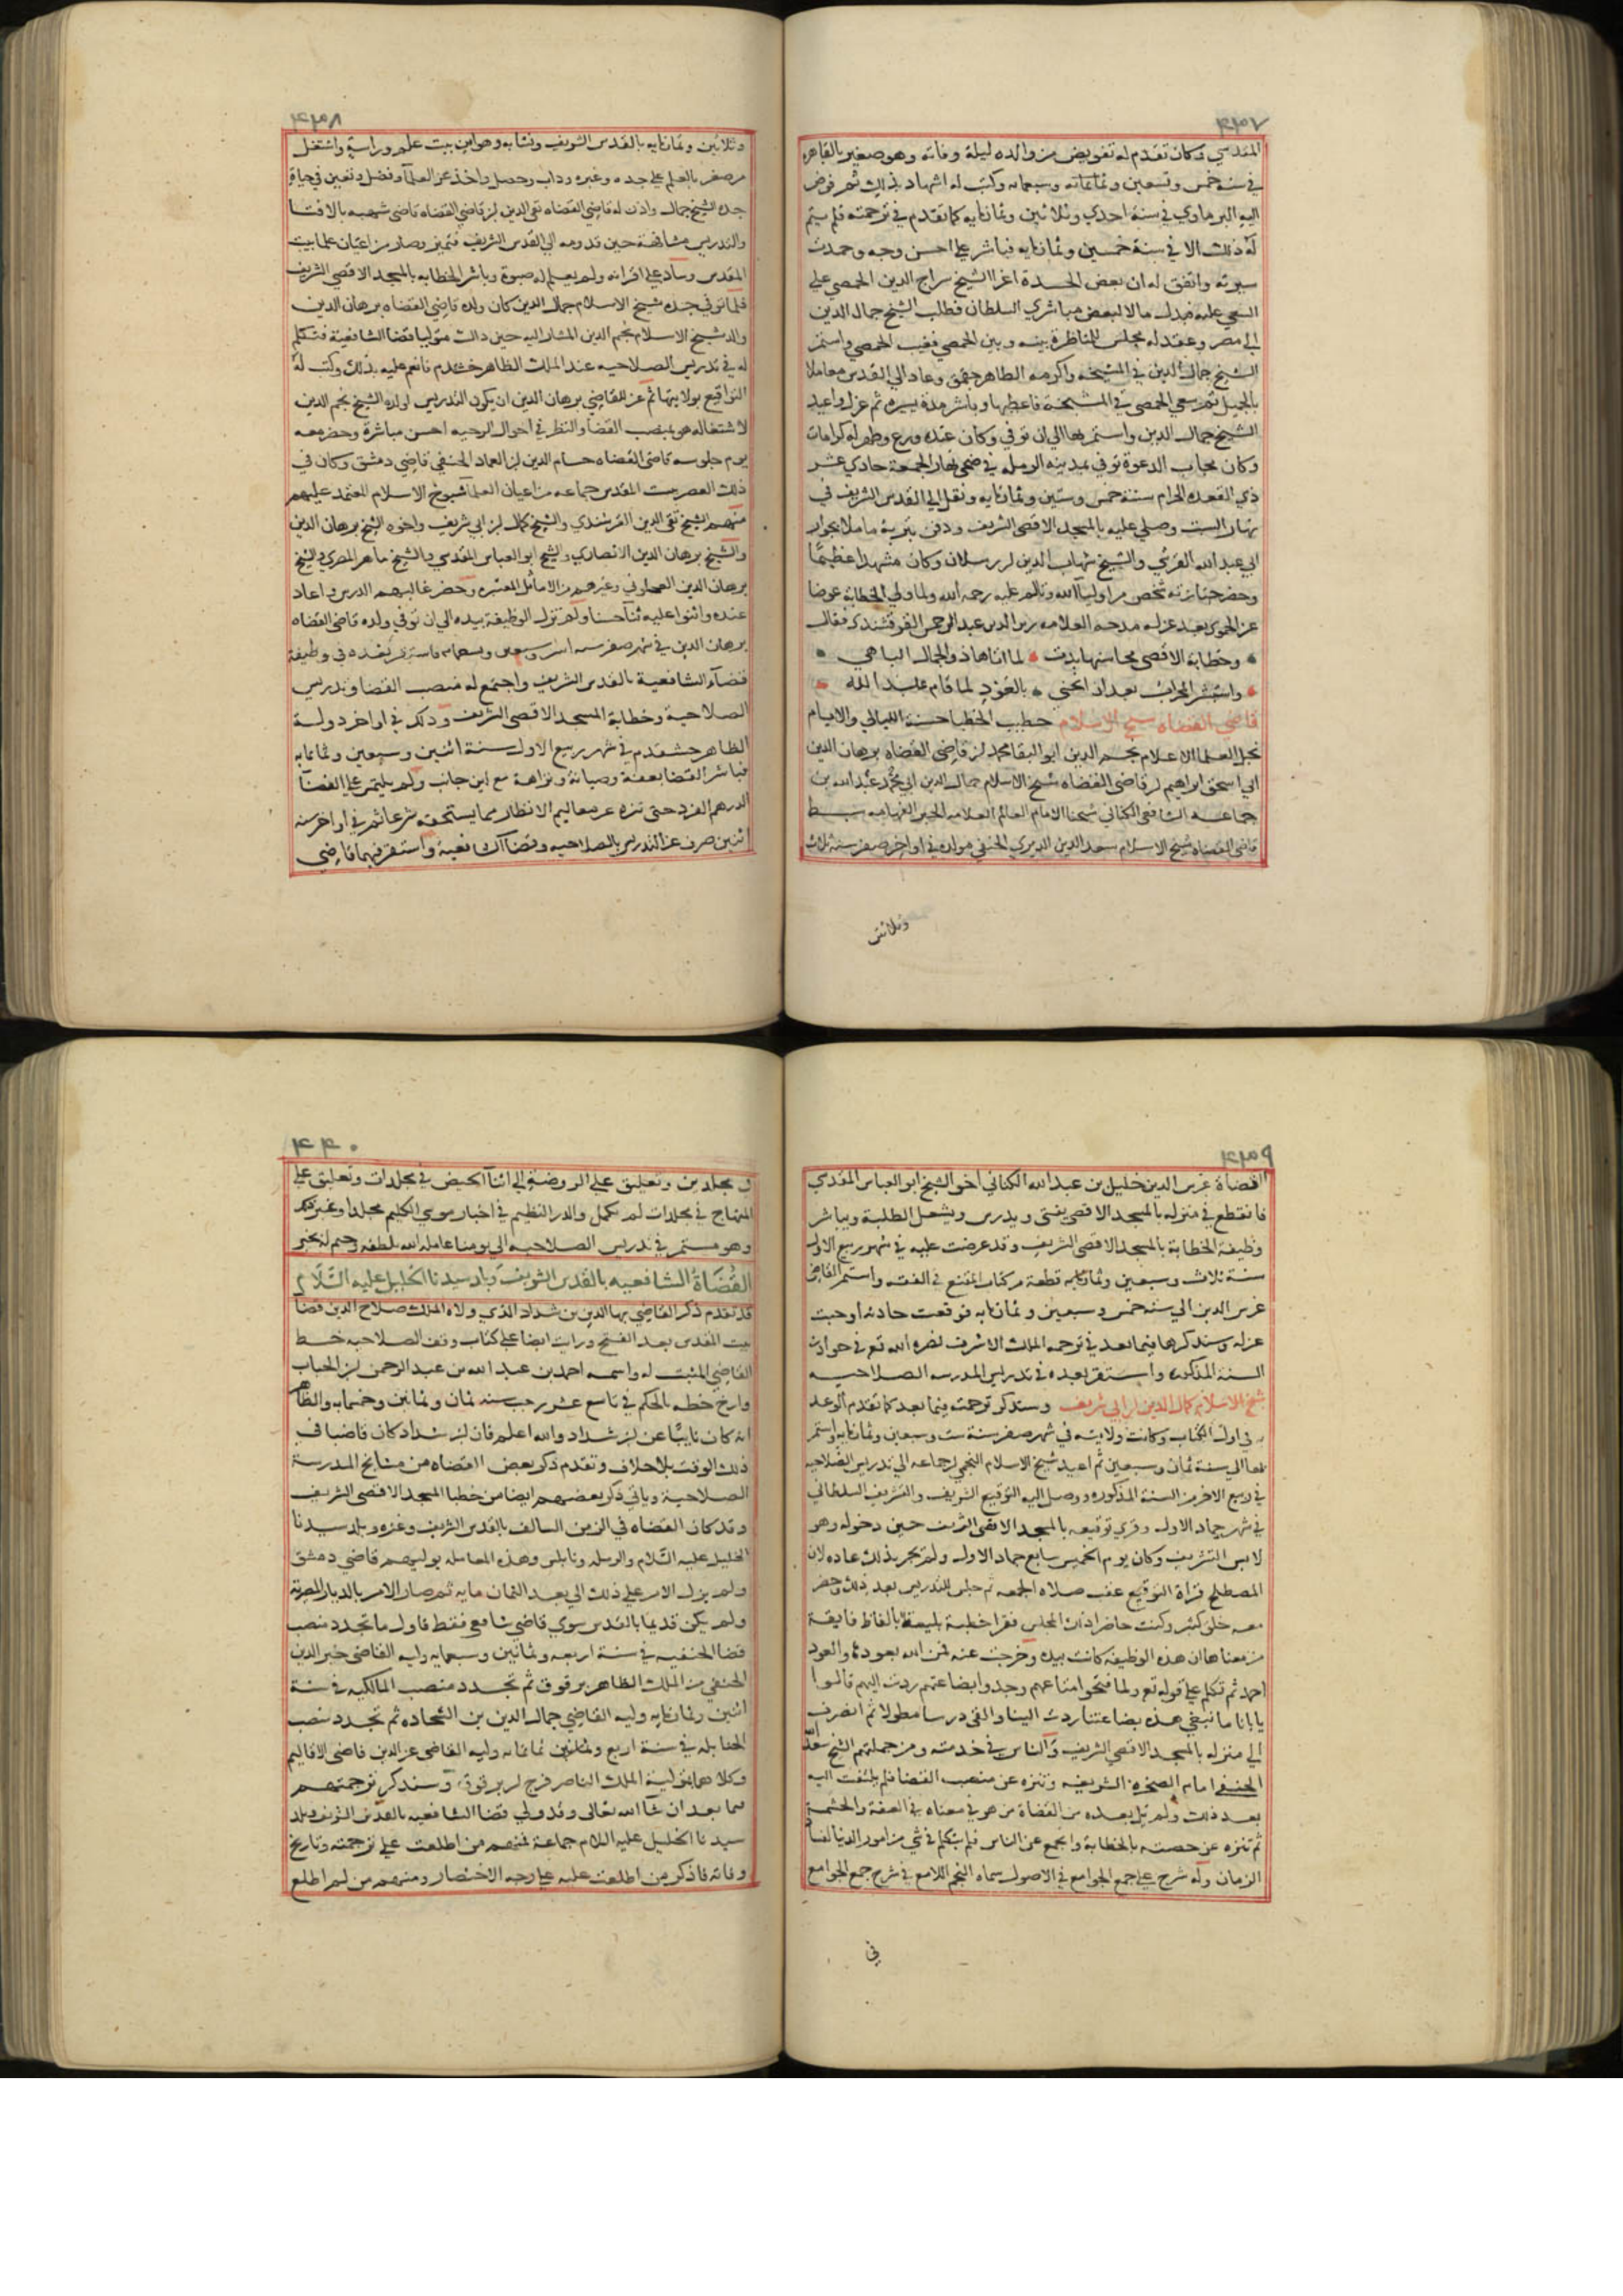 ٤٣٧
المقدسي وكان تقدم له تفويض من والده ليلة وفاته وهو صغير بالقاهره
في سنة خمس وتسعين وسبعمايه وكتب له اشهاد بذلك ثم فوض
اليه البرماوي في سنة احدي وثلاثين وثمانمايه كما تقدم في ترجمته فلم يتم
له ذلك الا في سنة خمسين وثمانمايه فباشر علي احسن وجه وحمدت
سيرته واتفق له ان بعض الحسدة اغرا الشيخ سراج الدين الحمصي علي
السعي عليه فبذل مالا لبعض مباشري السلطان فطلب الشيخ جمال الدين
الي مصر وعقد له مجلس للمناظرة بينه وبين الحمصي فغيب الحمصي واستمر
الشيخ جمال الدين في المشيخه واكرمه الظاهر جقمق وعاد الي القدس معاملا
بالجميل ثم سعي الحمصي في المشيخة فاعطيها وباشر مدة يسيره ثم عزل واعيد
الشيخ جمال الدين واستمر بها الي ان توفي وكان عنده ورع وظهر له كرامات
وكان مجاب الدعوة توفي بمدينه الرمله في ضحي نهار الجمعة حادي عشر
ذي القعده الحرام سنة خمس وستين وثمانمايه ونقل الي القدس الشريف في
نهار السبت وصلي عليه بالمسجد الاقصي الشريف ودفن بتربة ماملا بجوار
ابي عبد الله القرشي والشيخ شهاب الدين بن رسلان وكان مشهدا عظيما
وحضر جنازته شخص من اوليا الله وتالم عليه رحمه الله ولما ولي الخطابة عوضا
عن الحموي بعد عزله مدحه العلامه زين الدين عبد الرحمن القرقشندي فقال
وخطابة الاقصي محاسنها بدت لما اتاها ذو الجمال الباهي
واستبشر المحراب بعد ان انحني بالعود لما قام عبد الله
قاضي القضاه شيخ الاسلام خطيب الخطبا حسنة الليالي والايام
نجل العلما الاعلام نجم الدين ابو البقا محمد بن قاضي القضاه برهان الدين
ابي اسحق ابراهيم بن قاضي القضاه شيخ الاسلام جمال الدين ابي محمد عبد الله بن
جماعه الشافعي الكناني شيخنا الامام العالم العلامه الحبر الفهامه سبط
قاضي القضاه شيخ الاسلام سعد الدين الديري الحنفي مولده في اواخر صفر سنة ثلاث
وثلاثين
٤٣٨
وثلاثين وثمانمايه بالقدس الشريف ونشا به وهو من بيت علم ورياسة واشتغل
من صغره بالعلم علي جده وغيره وداب وحصل واخذ عن العلما وفضل وتعين في حياة
جده الشيخ جمال واذن له قاضي القضاه تقي الدين بن قاضي القضاه قاضي شهبه بالافتا
والتدريس مشافهة حين قدومه الي القدس الشريف فتميز وصار من اعيان علما بيت
المقدس وساد علي اقرانه ولم يعلم له صبوة وباشر الخطابه بالمسجد الاقصي الشريف
فلما توفي جده شيخ الاسلام جمال الدين كان ولده قاضي القضاه برهان الدين
والد شيخ الاسلام نجم الدين المشار اليه حين ذاك متوليا قضا الشافعية فتكلم
له في تدريس الصلاحيه عند الملك الظاهر خشقدم فانعم عليه بذلك وكتب له
التواقيع بولايتها ثم عن للقاضي برهان الدين ان يكون التدريس لولده الشيخ نجم الدين
لاشتغاله هو بمنصب القضا والنظر في احوال الرعيه احسن مباشرة وحضر معه
يوم جلوسه قاضي القضاه حسام الدين بن العماد الحنفي قاضي دمشق وكان في
ذلك العصر ببيت المقدس جماعه من اعيان العلما شيوخ الاسلام المعتمد عليهم
منهم الشيخ تقي الدين القرقشندي والشيخ كمال بن ابي شريف واخوه الشيخ برهان الدين
والشيخ برهان الدين الانصاري والشيخ ابو العباس المقدسي والشيخ ماهر المصري والشيخ
برهان الدين العجلوني وغيرهم من الاماثل المعتبره وحضر غالبهم الدرس واعاد
عنده واثنوا عليه ثنا حسنا ولم تزل الوظيفة بيده الي ان توفي ولده قاضي القضاه
برهان الدين في شهر صفر سنه اثنين وسبعين فاستقر بعده في وظيفة
قضاء الشافعية بالقدس الشريف واجتمع له منصب القضا وتدريس
الصلاحية وخطابة المسجد الاقصي الشريف وذلك في اواخر دولة
الظاهر خشقدم في شهر ربيع الاول سنة اثنين وسبعين وثمانمايه
فباشر القضا بعفة وصيانة ونزاهة مع لين جانب ولم يلتمس علي القضا
الدرهم الفرد حتي تنزه عن معاليم الانظار مما يستحقه شرعا ثم في اواخر سنه
اثنين صرف عن التدريس بالصلاحيه وقضا الشافعية واستقر فيهما قاضي
٤٣٩
القضاة غرس الدين خليل بن عبد الله الكناني اخو الشيخ ابو العباس المقدسي
فانقطع في منزله بالمسجد الاقصي يفتي ويدرس ويشغل الطلبة ويباشر
وظيفة الخطابة بالمسجد الاقصي الشريف وقد عرضت عليه في شهر ربيع الاول
سنة ثلاث وسبعين وثمانمايه قطعة من كتاب المقنع في الفقه واستمر القاضي
غرس الدين الي سنة خمس وسبعين وثمانمايه فوقعت حادثه اوجبت
عزله وسنذكرها فيما بعد في ترجمة الملك الاشرف نصره الله تع في حوادث
السنة المذكوره واستقر بعده في تدريس المدرسه الصلاحيه
شيخ الاسلام كمال الدين بن ابي شريف وسنذكر ترجمته فيما بعد كما تقدم الوعد
به في اول الكتاب وكانت ولايته في شهر صفر سنة ست وسبعين وثمانمايه واستمر
بها الي سنة ثمان وسبعين ثم اعيد شيخ الاسلام النجمي بن جماعه الي تدريس الصلاحيه
في ربيع الاخر من السنة المذكوره ووصل اليه التوقيع الشريف والتشريف السلطاني
في شهر جماد الاول وقري توقيعه بالمسجد الاقصي الشريف حين دخوله وهو
لابس التشريف وكان يوم الخميس سابع جماد الاول ولم تجر بذلك عاده لان
المصطلح قراة التوقيع عقب صلاه الجمعه ثم جلس للتدريس بعد ذلك وحضر
معه خلق كثير وكنت حاضرا ذلك المجلس فقرا خطبة بليغة بالفاظ فايقة
من معناها ان هذه الوظيفه كانت بيده وخرجت عنه فمن الله بعودها والعود
احمد ثم تكلم علي قوله تع ولما فتحوا متاعهم وجدوا بضاعتهم ردت اليهم قالوا
يا ابانا ما نبغي هذه بضاعتنا ردت الينا والقي درسا مطولا ثم انصرف
الي منزله بالمسجد الاقصي الشريف والناس في خدمته ومن جملتهم الشيخ سعد الله
الحنفي امام الصخره الشريفه وتنزه عن منصب القضا فلم يلتفت اليه
بعد ذلك ولم يل بعده من القضاة من هو في معناه في العفة والحشمة
ثم تنزه عن حصته بالخطابة وانجمع عن الناس فلم يتكلم في شي من امور الدنيا لفساد
الزمان وله شرح علي جمع الجوامع في الاصول سماه النجم اللامع في شرح جمع الجوامع
في
٤٤٠
في مجلدين وتعليق علي الروضة الي اثنا الحيض في مجلدات وتعليق علي
المنهاج في مجلدات لم تكمل والدر النظيم في اخبار موسي الكليم مجلدا وغير ذلك
وهو مستمر في تدريس الصلاحيه الي يومنا عامله الله بلطفه وختم له بخير
القضاة الشافعيه بالقدس الشريف وبلد سيدنا الخليل عليه السلام
قد تقدم ذكر القاضي بها الدين بن شداد الذي ولاه الملك صلاح الدين قضا
بيت المقدس بعد الفتح ورايت ايضا علي كتاب وقف الصلاحيه خط
القاضي المثبت له واسمه احمد بن عبد الله بن عبد الرحمن بن الحباب
وارخ خطه بالحكم في تاسع عشر رجب سنه ثمان وثمانين وخمسمايه والظاهر
انه كان نايبا عن بن شداد والله اعلم فان بن شداد كان قاضيا في
ذلك الوقت بلا خلاف وتقدم ذكر بعض القضاه من مشايخ المدرسة
الصلاحية وياتي ذكر بعضهم ايضا من خطبا المسجد الاقصي الشريف
وقد كان القضاه في الزمن السالف بالقدس الشريف وغزه وبلد سيدنا
الخليل عليه السلام والرمله ونابلس وهذه المعامله يوليهم قاضي دمشق
ولم يزل الامر علي ذلك الي بعد الثمان مايه ثم صار الامر بالديار المصرية
ولم يكن قديما بالقدس سوي قاضي شافعي فقط فاول ما تجدد منصب
قضا الحنفيه في سنة اربعه وثمانين وسبعمايه وليه القاضي خير الدين
الحنفي من الملك الظاهر برقوق ثم تجدد منصب المالكيه في سنة
اثنين وثمانمايه وليه القاضي جمال الدين بن الشحاده ثم تجدد منصب
الحنابله في سنة اربع وثمانمايه وليه القاضي عز الدين قاضي الاقاليم
وكلاهما بتولية الملك الناصر فرج بن برقوق وسنذكر ترجمتهم
فيما بعد ان شا الله تعالي وقد ولي قضا الشافعيه بالقدس الشريف وبلد
سيدنا الخليل عليه السلام جماعة فمنهم من اطلعت علي ترجمته وتاريخ
وفاته فاذكر من اطلعت عليه علي وجه الاختصار ومنهم من لم اطلع